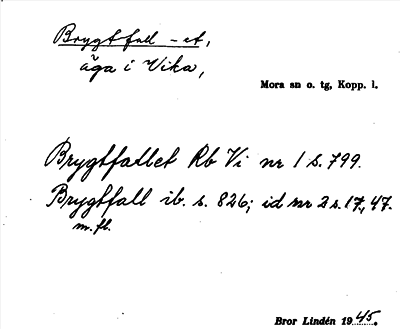 Brygtfall -et,
äga i Vika,
Mora sn o. tg, Kopp. l.
Brygtfallet Rb Vi nr 1 s. 799.
Brygtfall ib. s. 826; id nr 2 s. 17, 47.
m. fl.
Bror Lindén 1945.